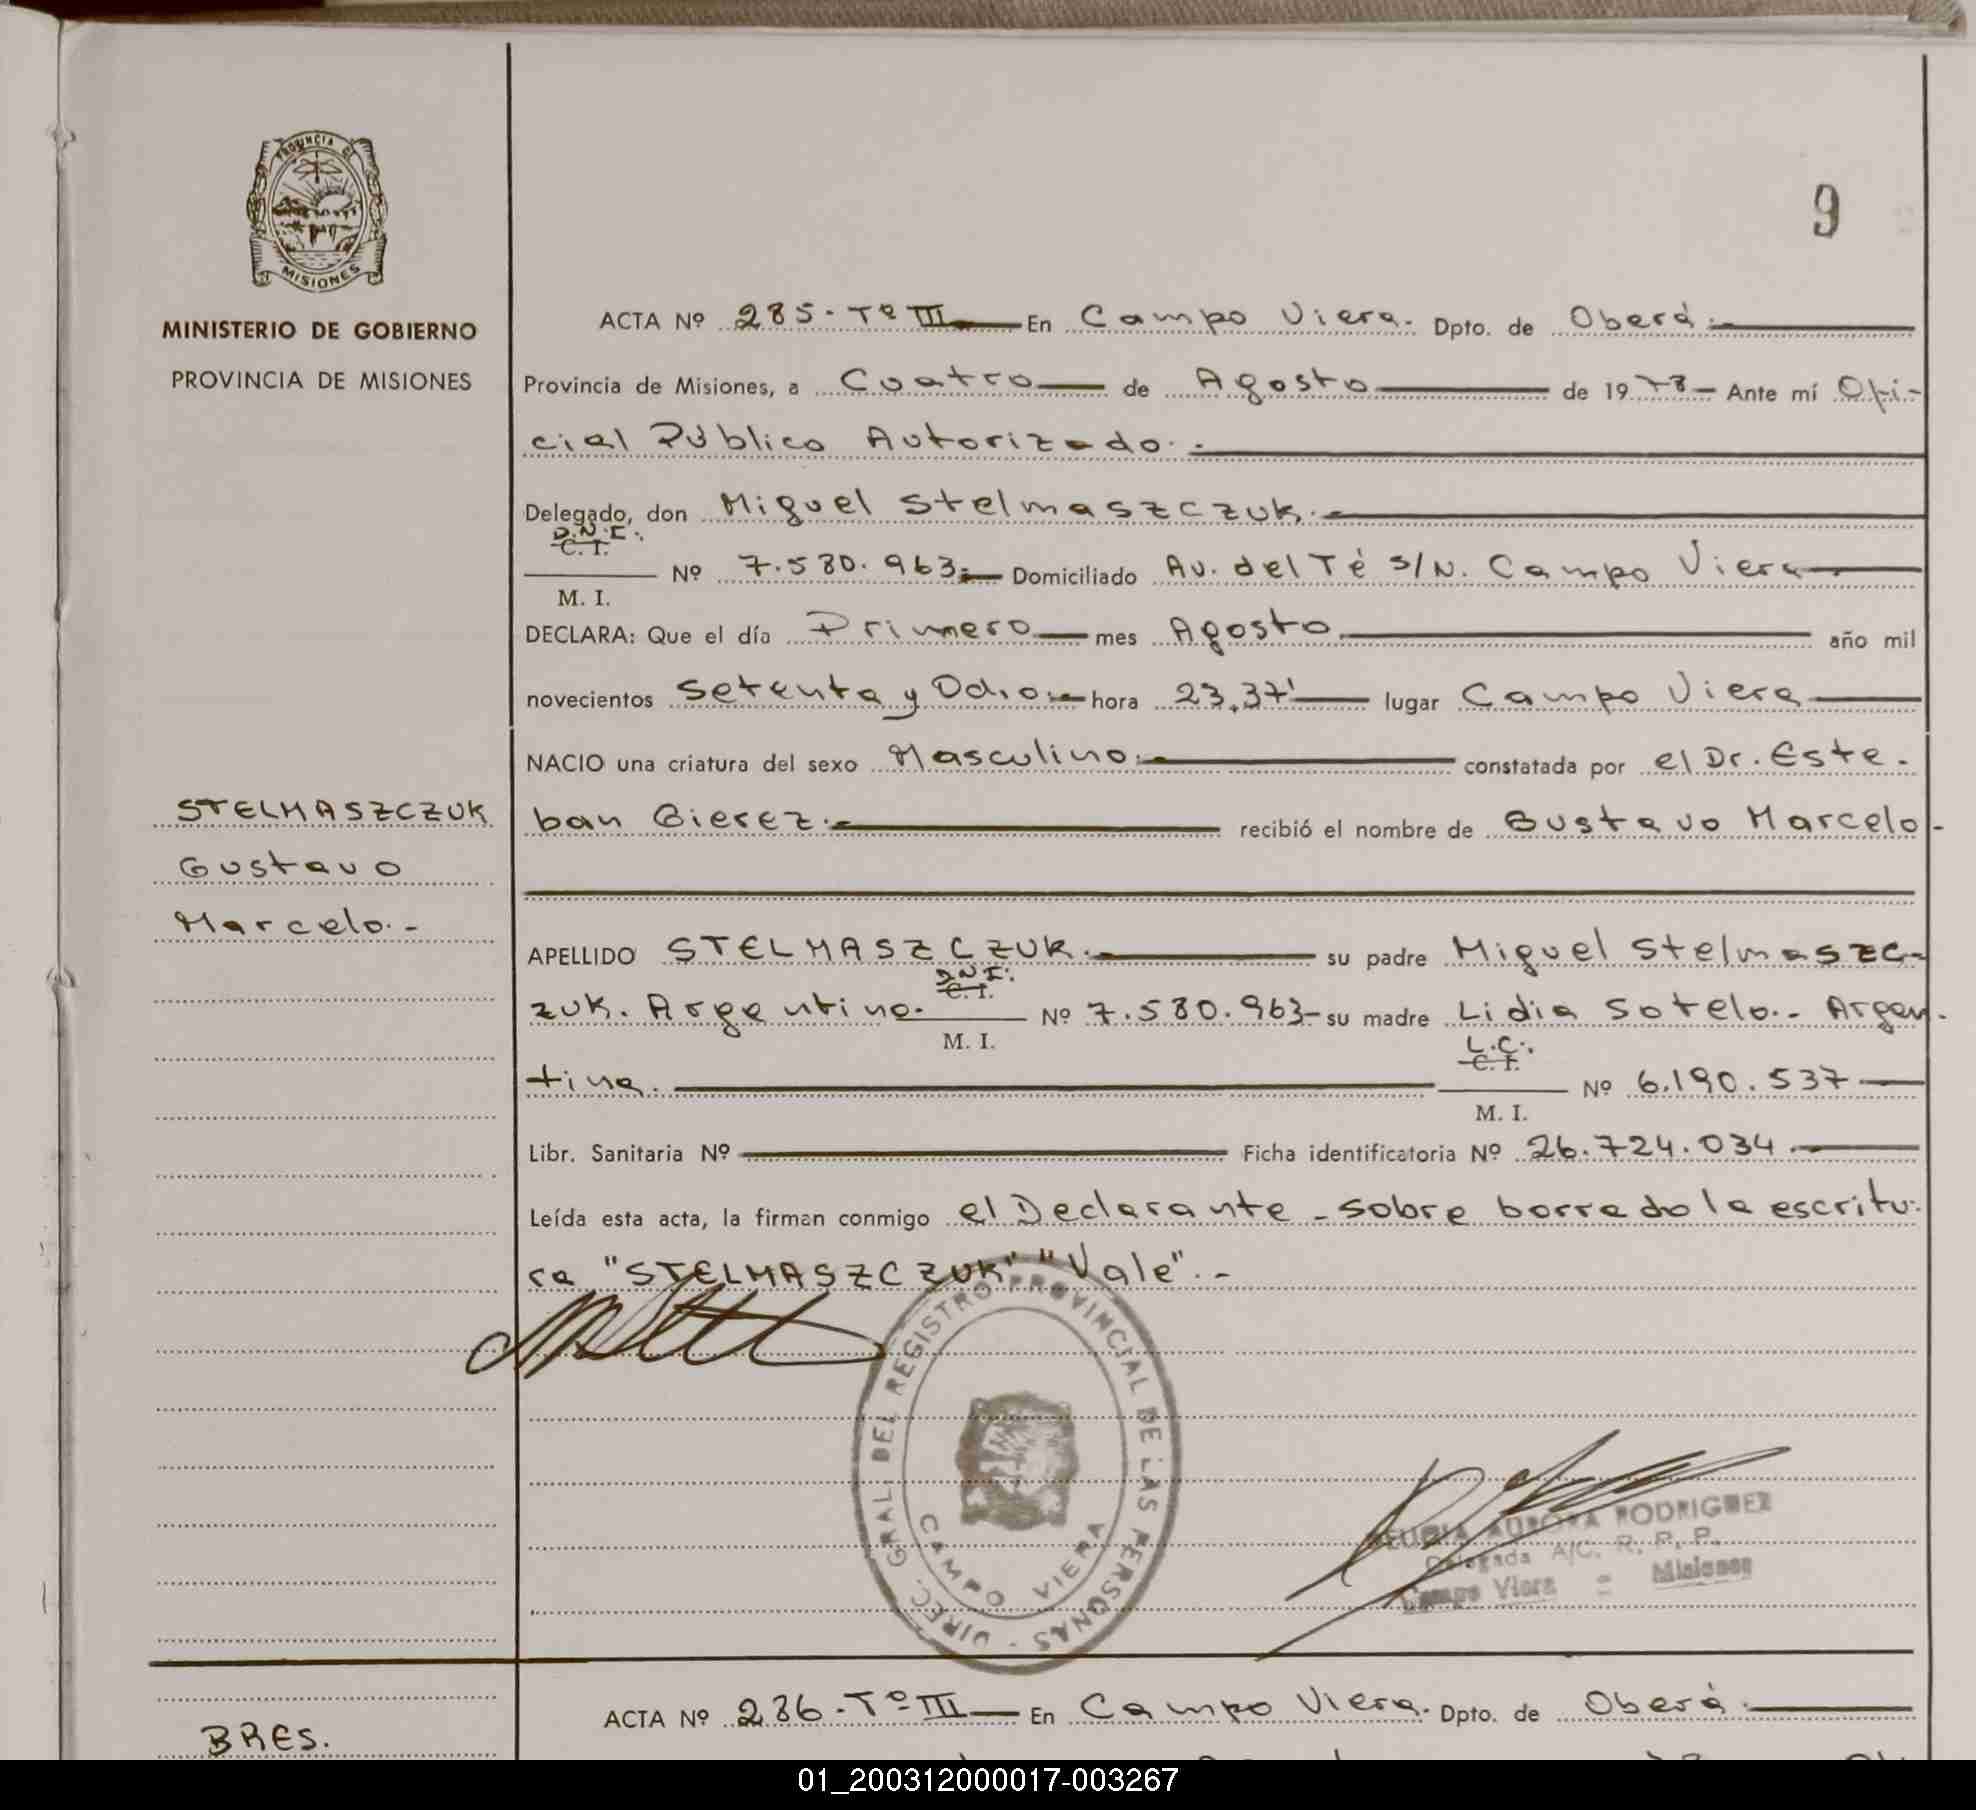 PROVINCIA DE
MISIONES
MINISTERIO DE GOBIERNO
PROVINCIA DE MISIONES
9
ACTA Nº 285 - Tº III En Campo Viera. Dpto. de Oberá.
Provincia de Misiones, a Cuatro de Agosto de 1978 Ante mí Ofi-
cial Público Autorizado.
Delegado, don Miguel Stelmaszczuk.
D.N.I.
C. I.
Nº 7.580.963. Domiciliado Av. del Té S/N. Campo Viera
M. I.
DECLARA: Que el día Primero mes Agosto año mil
novecientos Setenta y Ocho hora 23,37' lugar Campo Viera
NACIO una criatura del sexo Masculino. constatada por el Dr. Este-
ban Gierez. recibió el nombre de Gustavo Marcelo.
STELMASZCZUK
Gustavo
Marcelo.-
APELLIDO STELMASZCZUK. su padre Miguel Stelmaszc-
D.N.I.
C. I.
zuk. Argentino. Nº 7.580.963- su madre Lidia Sotelo.- Argen-
M. I.
L.C.
C. I.
tina. Nº 6.190.537
M. I.
Libr. Sanitaria Nº Ficha identificatoria Nº 26.724.034.
Leída esta acta, la firman conmigo el Declarante - sobre borrado la escritu-
ra "STELMASZCZUK" "Vale".-
DIREC. GRAL. DEL REGISTRO PROVINCIAL DE LAS PERSONAS -
CAMPO VIERA
AURORA RODRIGUEZ
Delegada A/C. R. P. P.
Campo Viera - Misiones
ACTA Nº 286 - Tº III En Campo Viera. Dpto. de Oberá.
BRES.
01_200312000017-003267